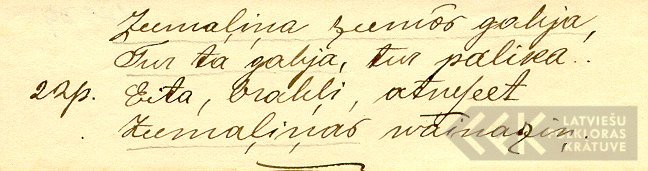 Zeemaļiņa zeemôs gahja,
Tur ta gahja, tur palika..
22p. Eita, brahļi, atneſeet
Zeemaļiņas wainaziņ.
LATVIEŠU
FOLKLORAS
KRĀTUVE